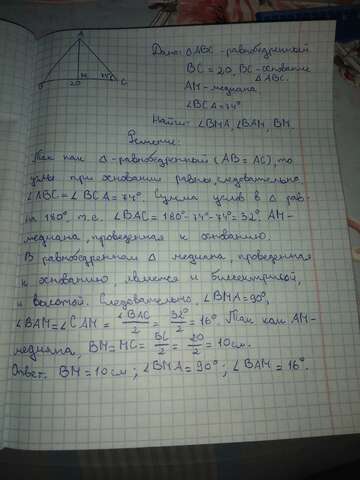 A
Дано: △ABC - равнобедренный
BC = 20, BC - основание
△ABC.
AM - медиана
∠BCA = 74°
B 20 M 74° C
Найти: ∠BMA, ∠BAM, BM
Решение:
Так как △-равнобедренный (AB = AC), то
углы при основании равны, следовательно
∠ABC = ∠BCA = 74°. Сумма углов в △ рав-
на 180°, т.е. ∠BAC = 180° - 74° - 74° = 32°. AM-
медиана, проведенная к основанию.
В равнобедренном △ медиана, проведенная
к основанию, является и биссектрисой,
и высотой. Следовательно, ∠BMA = 90°,
∠BAM = ∠CAM = ∠BAC/2 = 32°/2 = 16°. Так как AM-
медиана, BM = MC = BC/2 = 20/2 = 10см.
Ответ: BM = 10см; ∠BMA = 90°; ∠BAM = 16°.